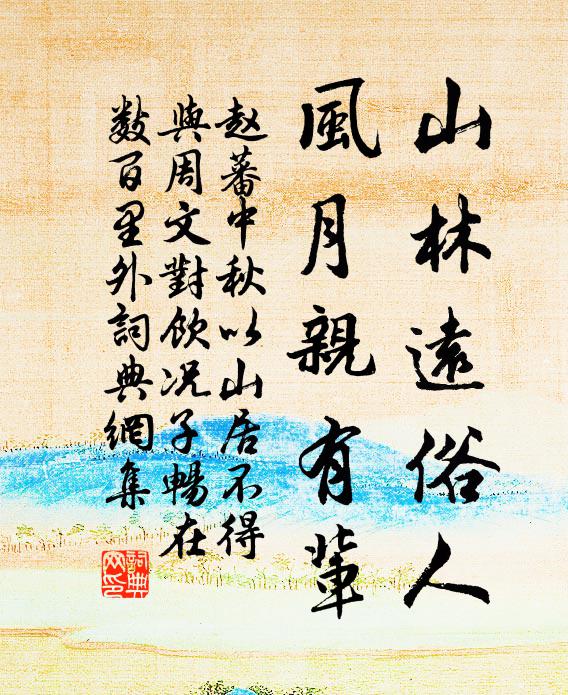 山林遠俗人
風月親有輩
赵蕃中秋以山居不得
與周文對飲况子暢在
数百里外詞典網集
詞典
网印